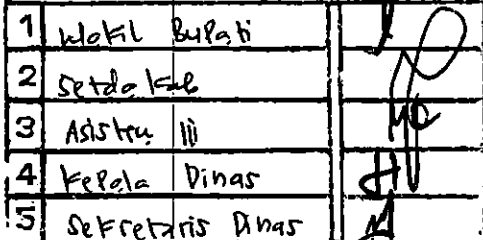 1 Wakil Bupati
2 Setda Kab
3 Asisten III
4 Kepala Dinas
5 Sekretaris Dinas